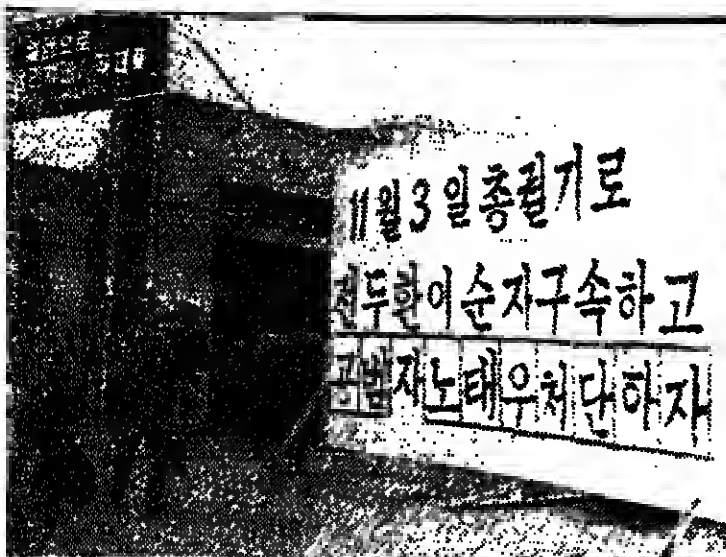 11월3일총궐기로
전두환이순자구속하고
공범자노태우처단하자